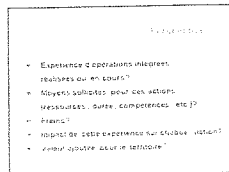 Expérience d'opérations intégrées
réalisées ou en cours?
Moyens sollicités pour ces actions
(ressources, durée, compétences, etc.)?
Freins?
Impact de cette expérience sur chaque action?
Valeur ajoutée pour le territoire?